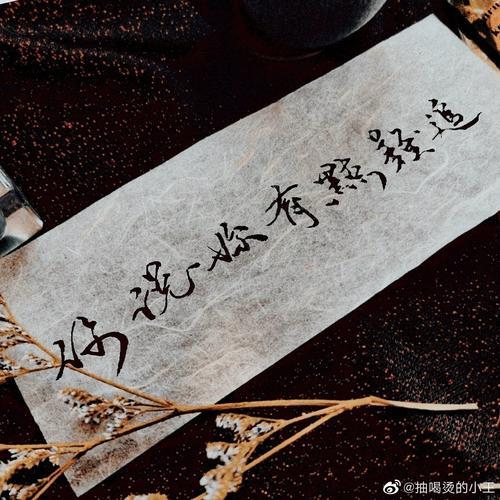 你说你有點難追
@抽喝烫的小王